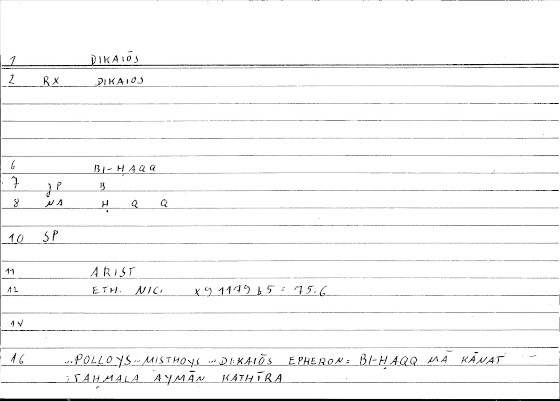 1 DIKAIŌS
2 RX DIKAIOS
6 BI-ḤAQQ
7 JP B
8 NA Ḥ Q Q
10 SP
11 ARIST
12 ETH. NIC. x9 1179 b5 = 75.6
14
16 ...POLLOYS...MISTHOYS...DIKAIŌS EPHERON = BI-ḤAQQ MĀ KĀNAT
TAḤMALA AYMĀN KATHĪRA